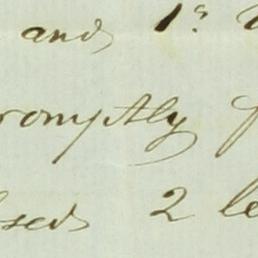 and 1s
romptly
sed 2 le